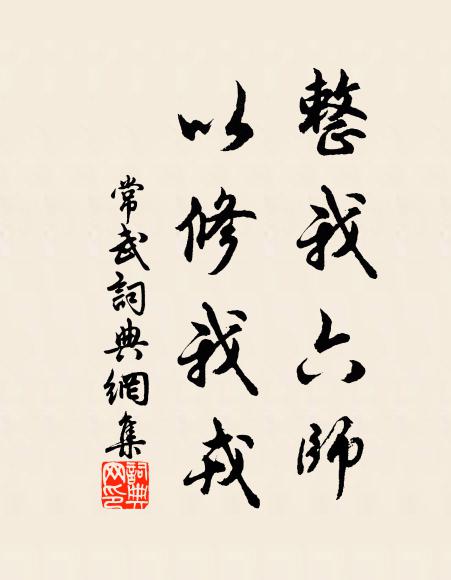 整我六師
以修我戎
常武詞典網集
詞典網印